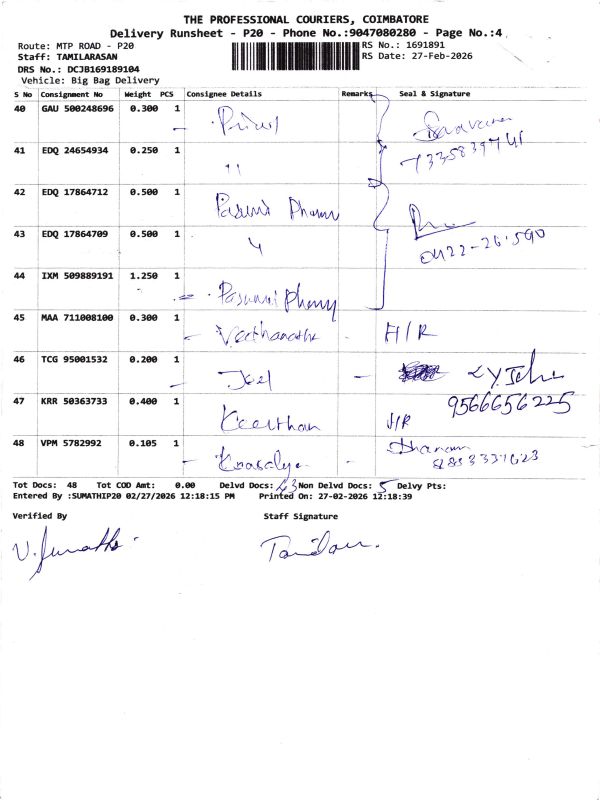 THE PROFESSIONAL COURIERS, COIMBATORE
Delivery Runsheet - P20 - Phone No.:9047080280 - Page No.:4
Route: MTP ROAD - P20 RS No.: 1691891
Staff: TAMILARASAN RS Date: 27-Feb-2026
DRS No.: DCJB169189104
Vehicle: Big Bag Delivery
S No Consignment No Weight PCS Consignee Details Remarks Seal & Signature
40 GAU 500248696 0.300 1
41 EDQ 24654934 0.250 1 "
42 EDQ 17864712 0.500 1
43 EDQ 17864709 0.500 1 "
44 IXM 509889191 1.250 1
45 MAA 711008100 0.300 1 H/R
46 TCG 95001532 0.200 1 Joel
47 KRR 50363733 0.400 1 Keerthan 9566656225
48 VPM 5782992 0.105 1
Tot Docs: 48 Tot COD Amt: 0.00 Delvd Docs: 43 Non Delvd Docs: 5 Delvy Pts:
Entered By :SUMATHIP20 02/27/2026 12:18:15 PM Printed On: 27-02-2026 12:18:39
Verified By Staff Signature